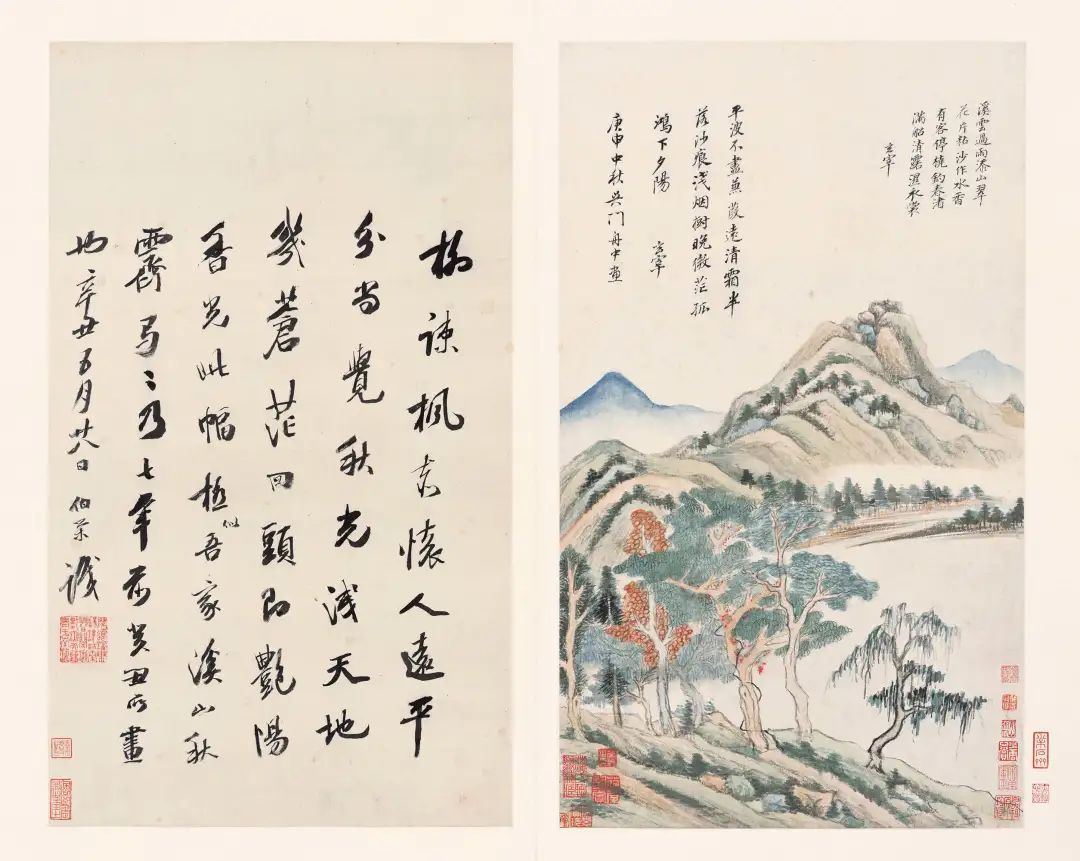 溪雲過雨添山翠
花片粘沙作水香
有客停橈釣春渚
滿船清露濕衣裳
玄宰
平波不盡蒹葭遠清霜半
落沙痕淺烟樹晚微茫孤
鴻下夕陽 玄宰
庚申中秋吳門舟中畫
柳疎楓老懷人遠平
分尚覺秋光淺天地
幾蒼茫回頭即艷陽
香光此幅極似吾家溪山秋
霽弓〻乃七年前癸丑所畫
也辛丑五月廿八日 伯榮識